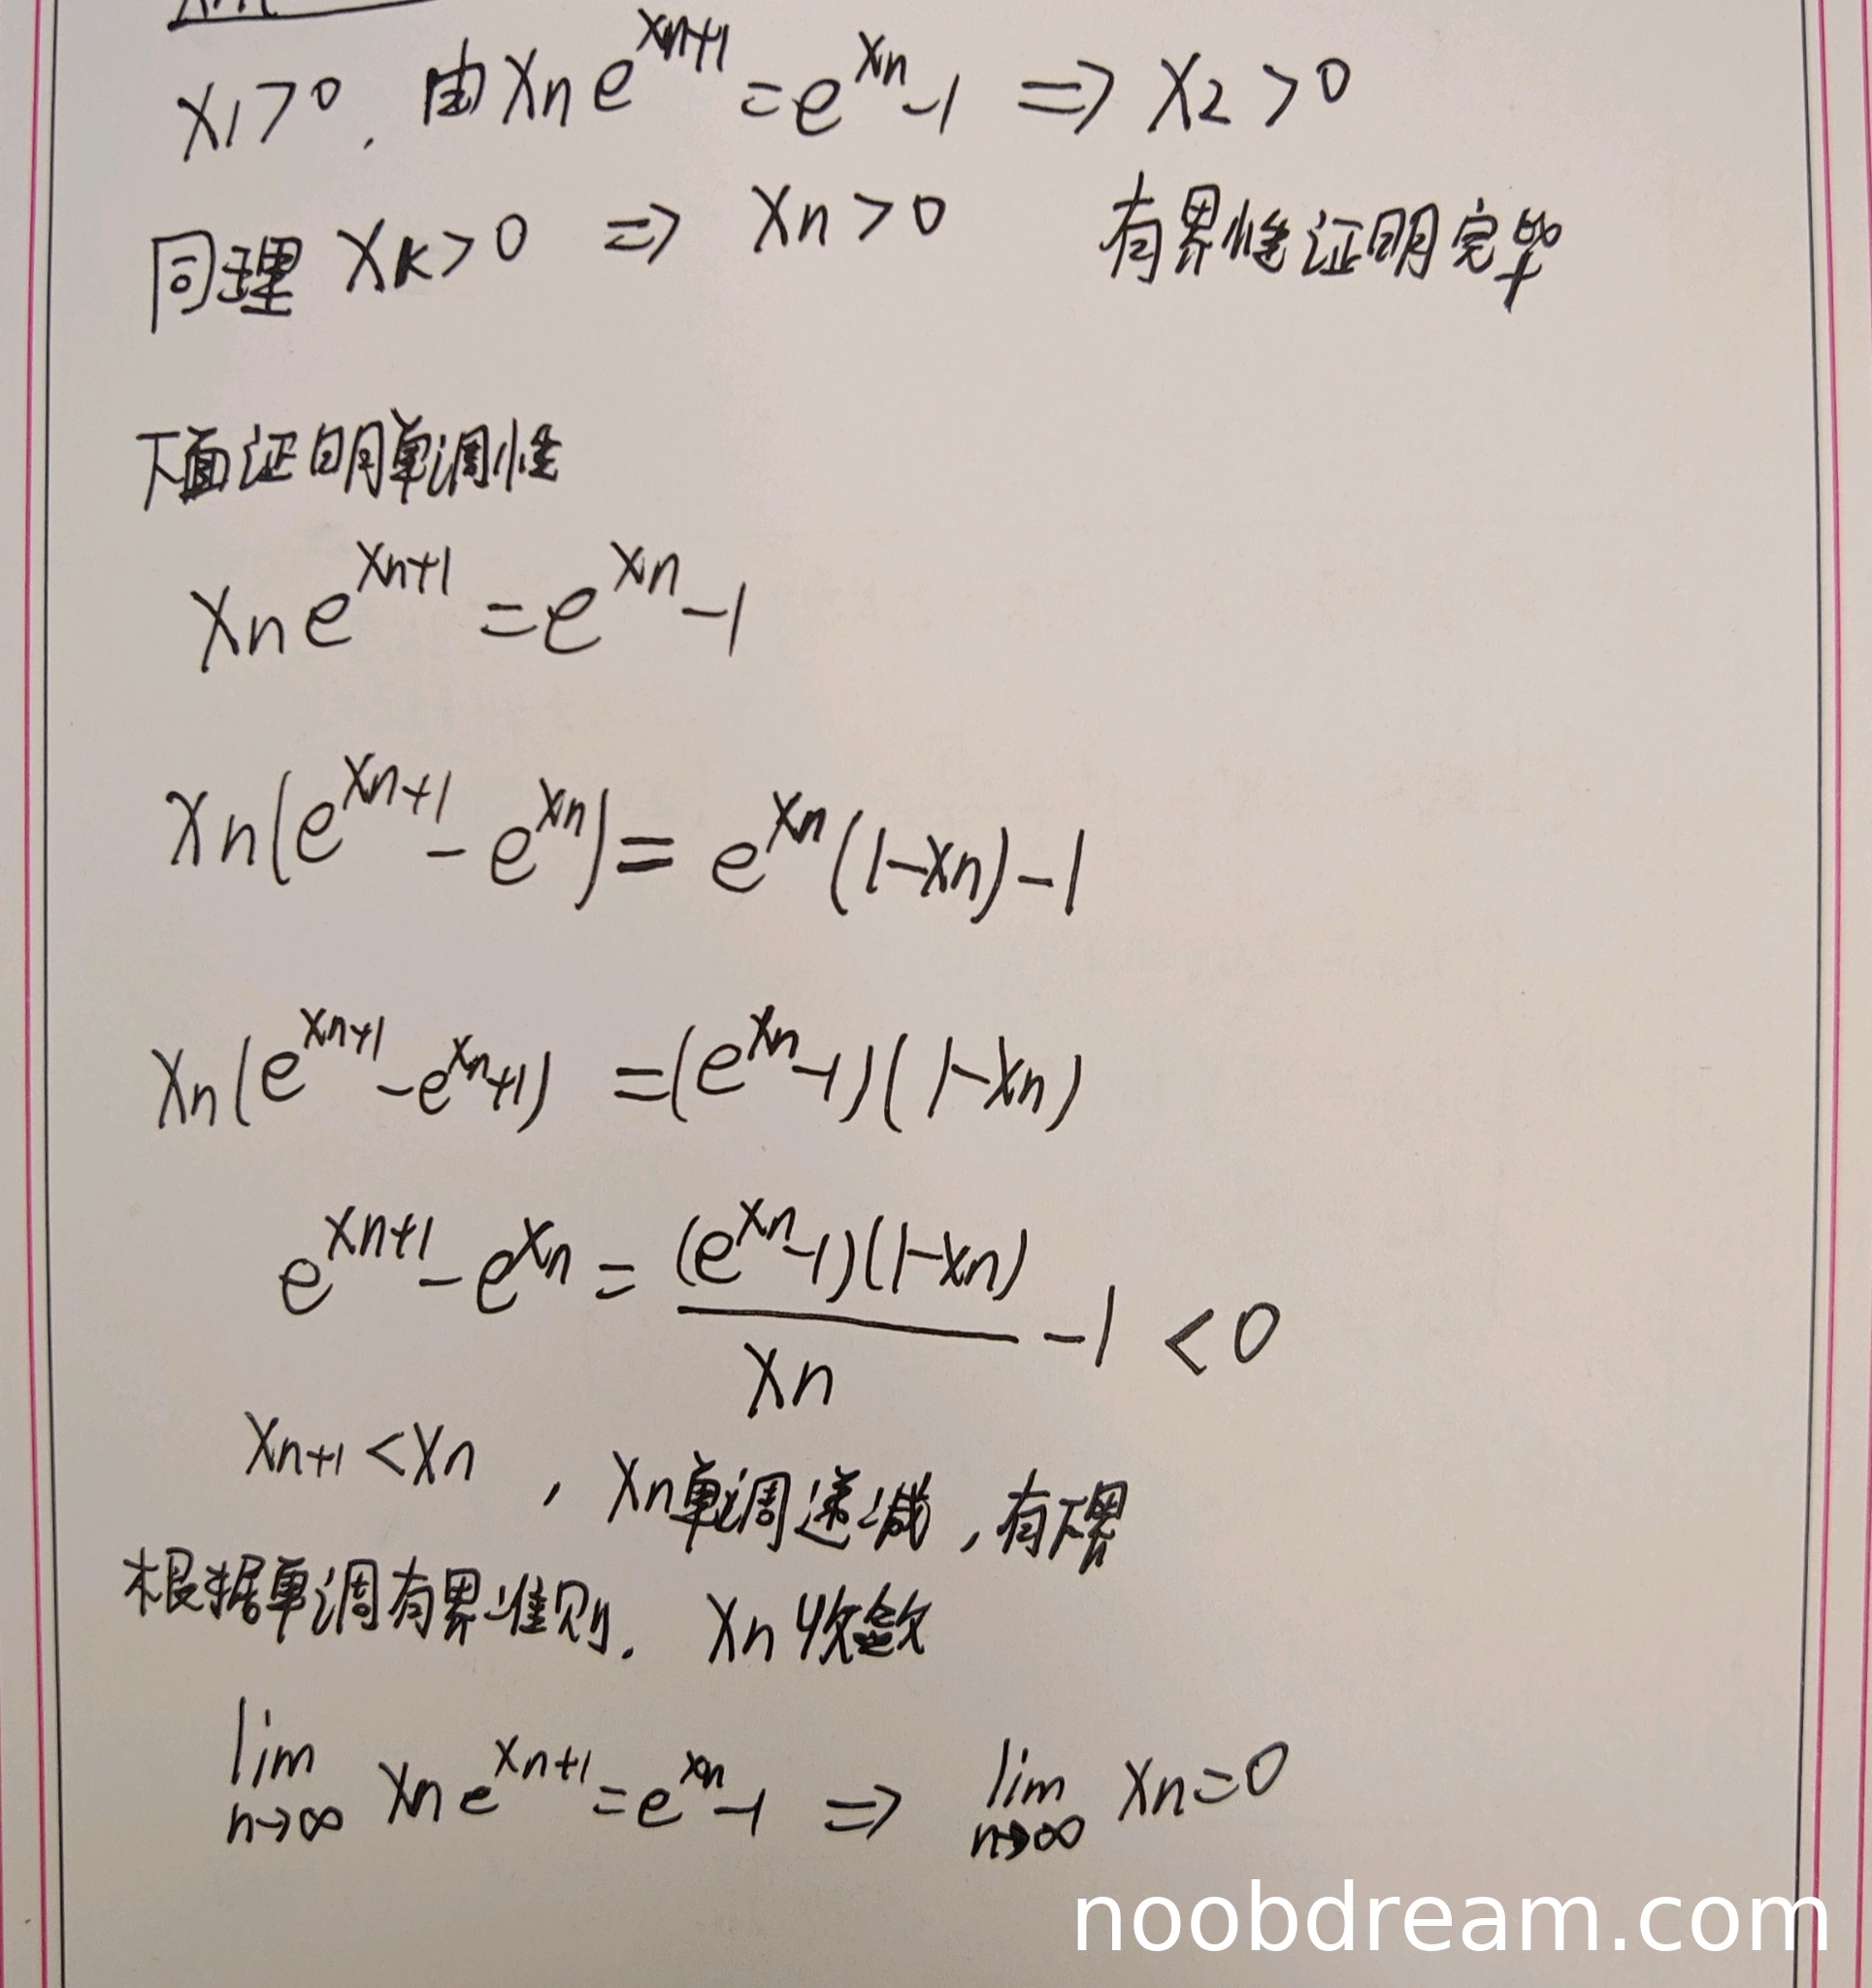 x₁>0, 由xₙe^{xₙ₊₁}=e^{xₙ}-1 ⇒ x₂>0
同理 xₖ>0 ⇒ xₙ>0 有界性证明完毕
下面证明单调性
xₙe^{xₙ₊₁}=e^{xₙ}-1
xₙ(e^{xₙ₊₁}-e^{xₙ})=e^{xₙ}(1-xₙ)-1
xₙ(e^{xₙ₊₁}-e^{xₙ}+1)=(e^{xₙ}-1)(1-xₙ)
e^{xₙ₊₁}-e^{xₙ}=\frac{(e^{xₙ}-1)(1-xₙ)}{xₙ}-1<0
xₙ₊₁<xₙ, xₙ单调递减,有下界
根据单调有界准则. xₙ收敛
lim_{n→∞} xₙe^{xₙ₊₁}=e^{xₙ}-1 ⇒ lim_{n→∞} xₙ=0
noobdream.com